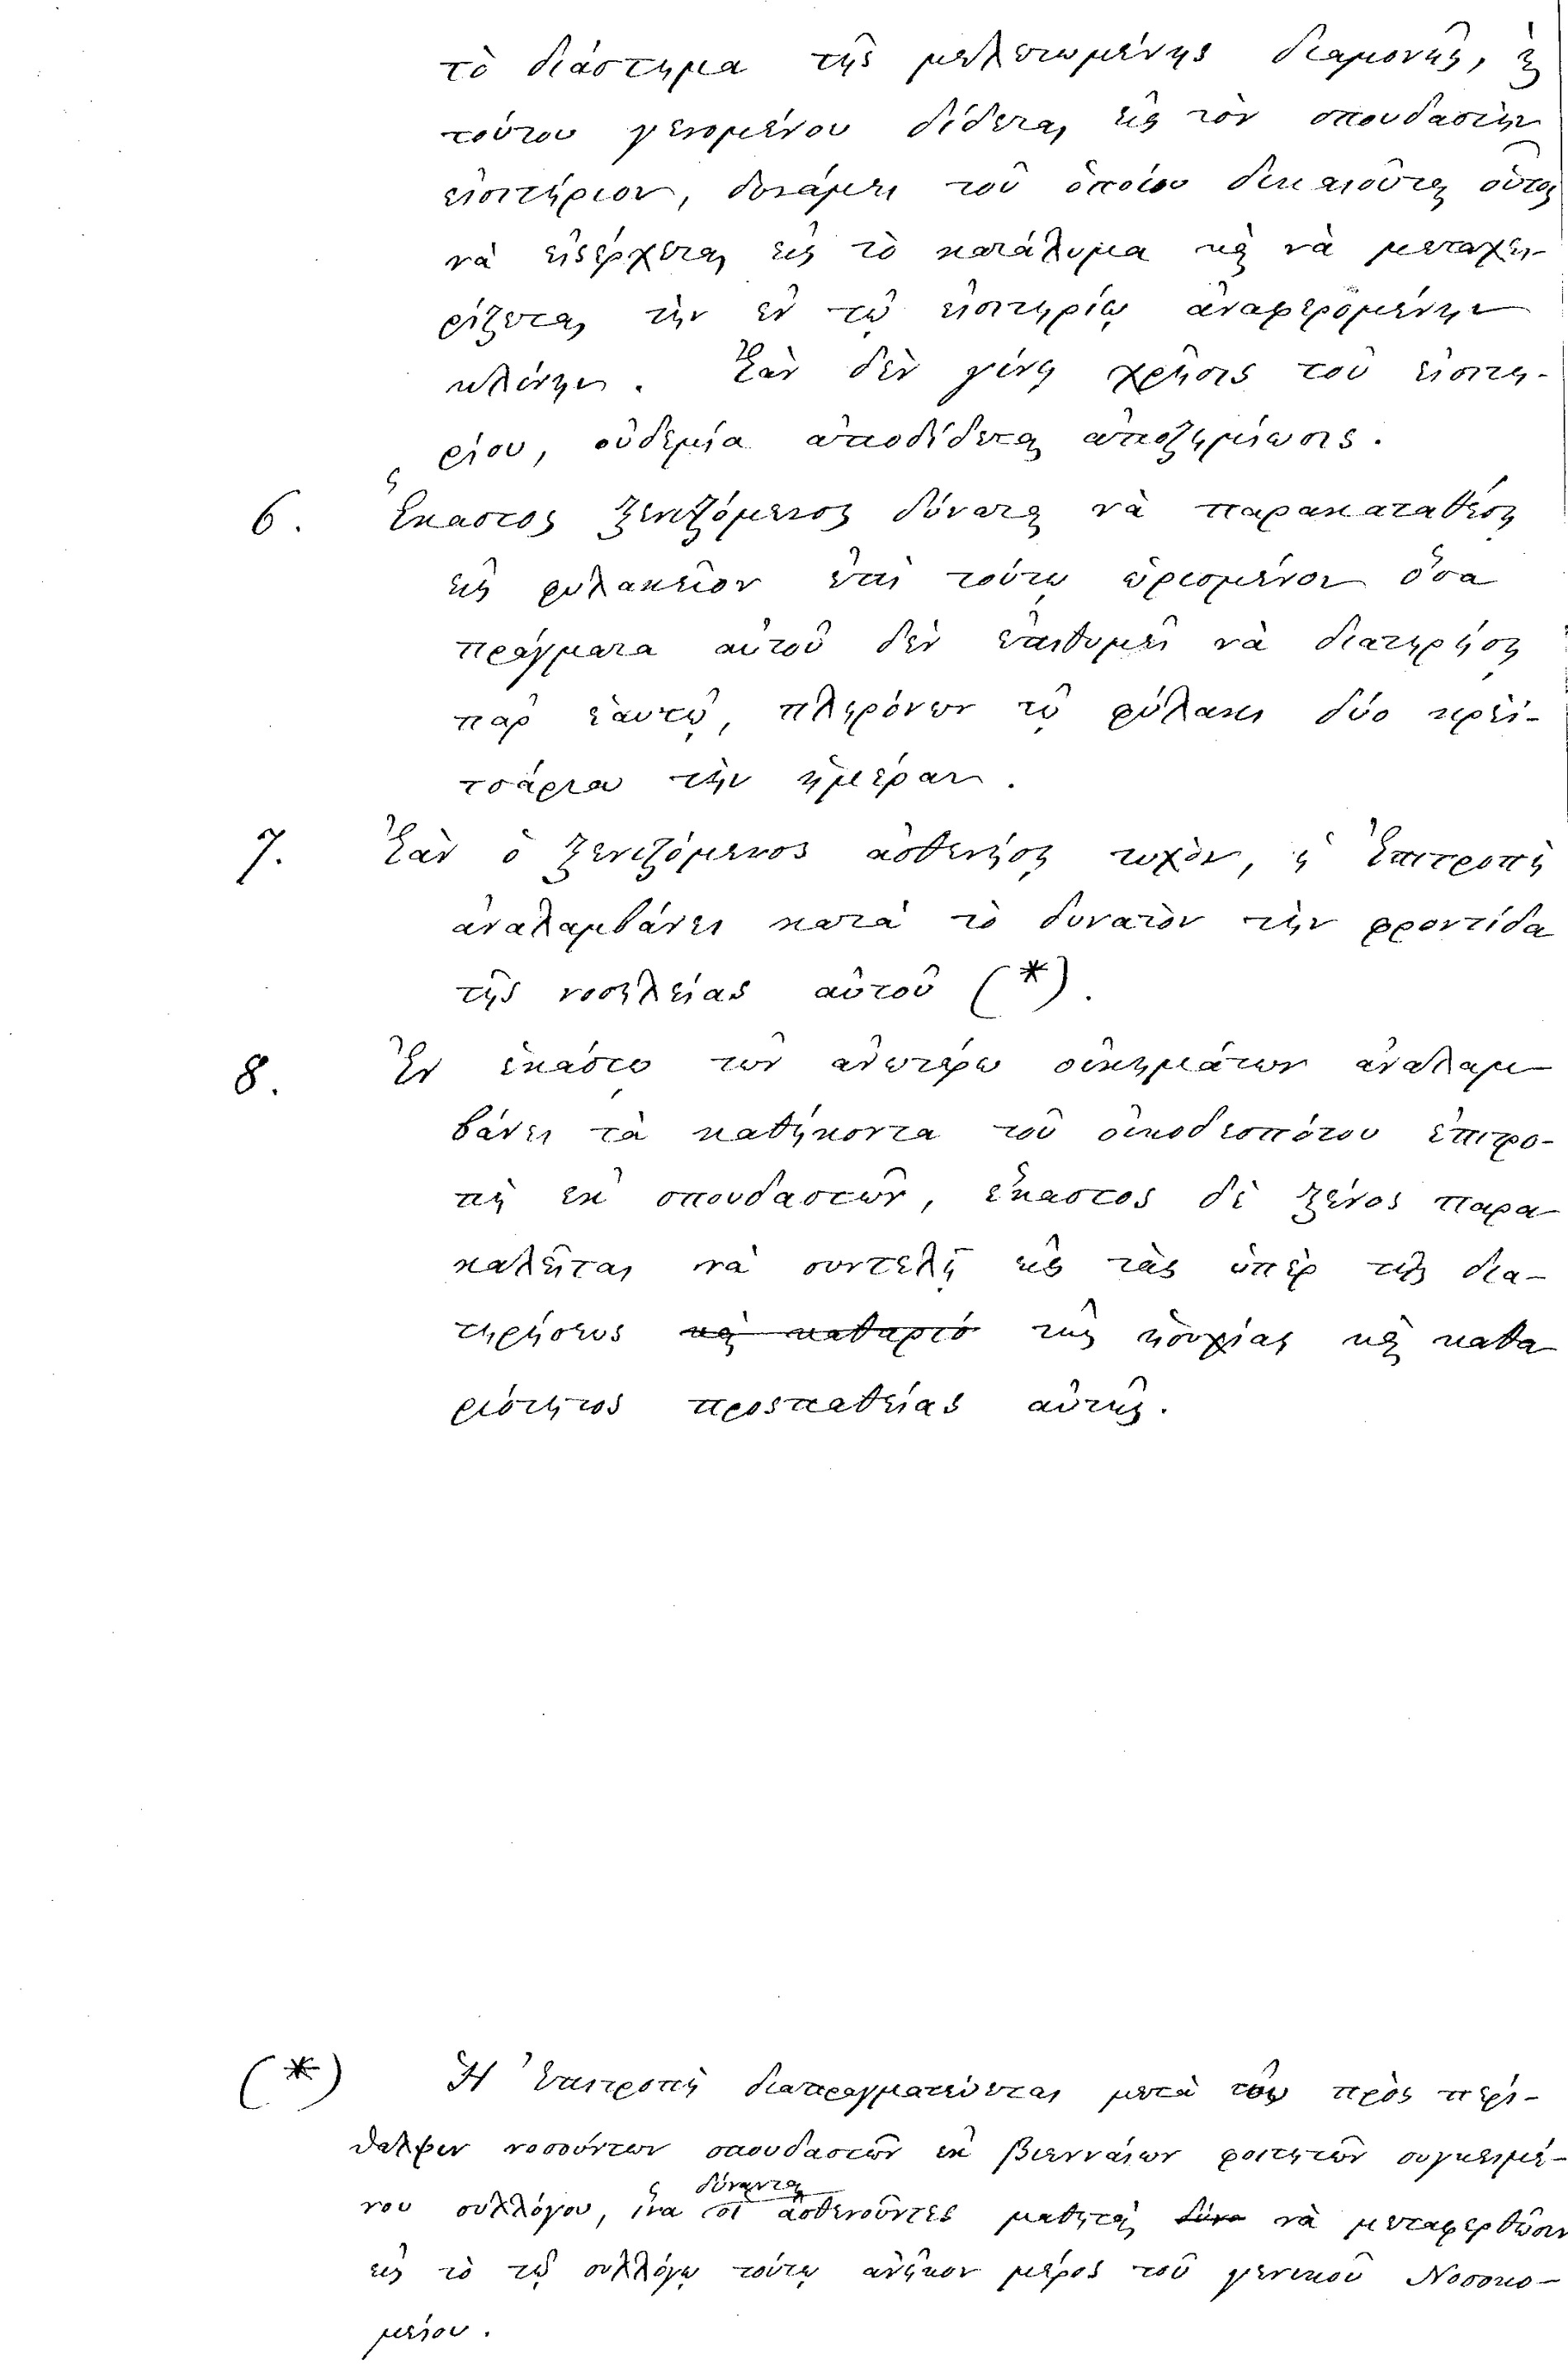 τὸ διάστημα τῆς μελετωμένης διαμονῆς, ἐ
τούτου γενομένου δίδεται εἰς τὸν σπουδαστὴν
εἰσιτήριον, δυνάμει τοῦ ὁποίου δικαιοῦται οὗτος
νὰ εἰσέρχεται εἰς τὸ κατάλυμα καὶ νὰ μεταχει-
ρίζεται τὴν ἐν τῷ εἰσιτηρίῳ ἀναφερομένην
κλίνην. Ἐὰν δὲν γίνῃ χρῆσις τοῦ εἰσιτη-
ρίου, οὐδεμία ἀποδίδεται ἀποζημίωσις.
6. Ἕκαστος ξενιζόμενος δύναται νὰ παρακαταθέσῃ
εἰς φυλακεῖον ἐπὶ τούτῳ ὡρισμένον ὅσα
πράγματα αὐτοῦ δὲν ἐπιθυμεῖ νὰ διατηρήσῃ
παρ' ἑαυτῷ, πληρόνων τῷ φύλακι δύο κρεϊ-
τσάρια τὴν ἡμέραν.
7. Ἐὰν ὁ ξενιζόμενος ἀσθενήσῃ τυχὸν, ἡ Ἐπιτροπὴ
ἀναλαμβάνει κατὰ τὸ δυνατὸν τὴν φροντίδα
τῆς νοσηλείας αὐτοῦ (*).
8. Ἐν ἑκάστῳ τῶν ἀνωτέρω οἰκημάτων ἀναλαμ
βάνει τὰ καθήκοντα τοῦ οἰκοδεσπότου ἐπιτρο-
πὴ ἐκ σπουδαστῶν, ἕκαστος δὲ ξένος παρα
καλεῖται νὰ συντελῇ εἰς τὰς ὑπὲρ τῆς δια-
τηρήσεως καὶ καθαριό τῆς ἡσυχίας καὶ καθα
ριότητος προσπαθείας αὐτῆς.
(*) Ἡ Ἐπιτροπὴ διαπραγματεύεται μετὰ τοῦ πρὸς περί-
θαλψιν νοσούντων σπουδαστῶν ἐκ βιενναίων φοιτητῶν συγκειμέ-
δύνανται
νου συλλόγου, ἵνα οἱ ἀσθενοῦντες μαθηταὶ δύνα νὰ μεταφερθῶσιν
εἰς τὸ τῷ συλλόγῳ τούτῳ ἀνῆκον μέρος τοῦ γενικοῦ Νοσοκο-
μείου.